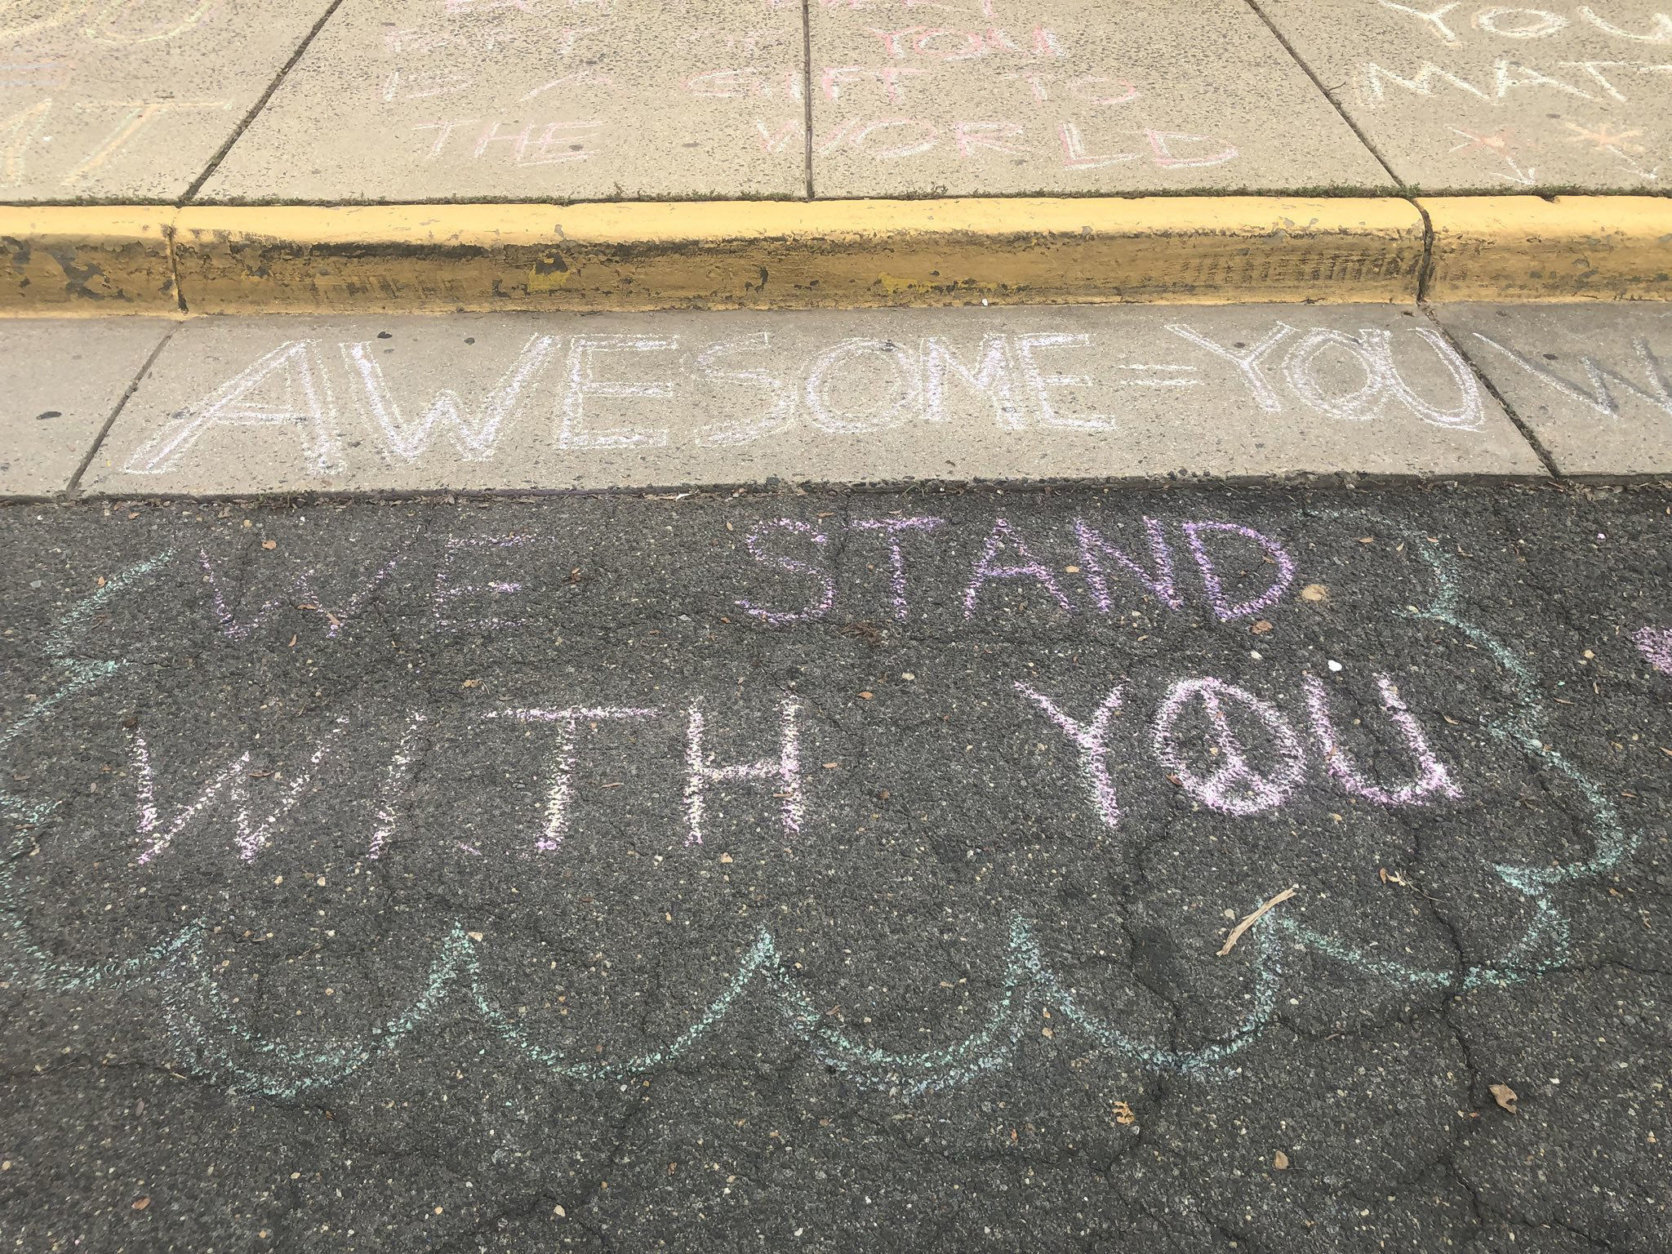 YOU
IS A GIFT TO
THE WORLD
YOU
MATT
AWESOME = YOU W
WE STAND
WITH YOU